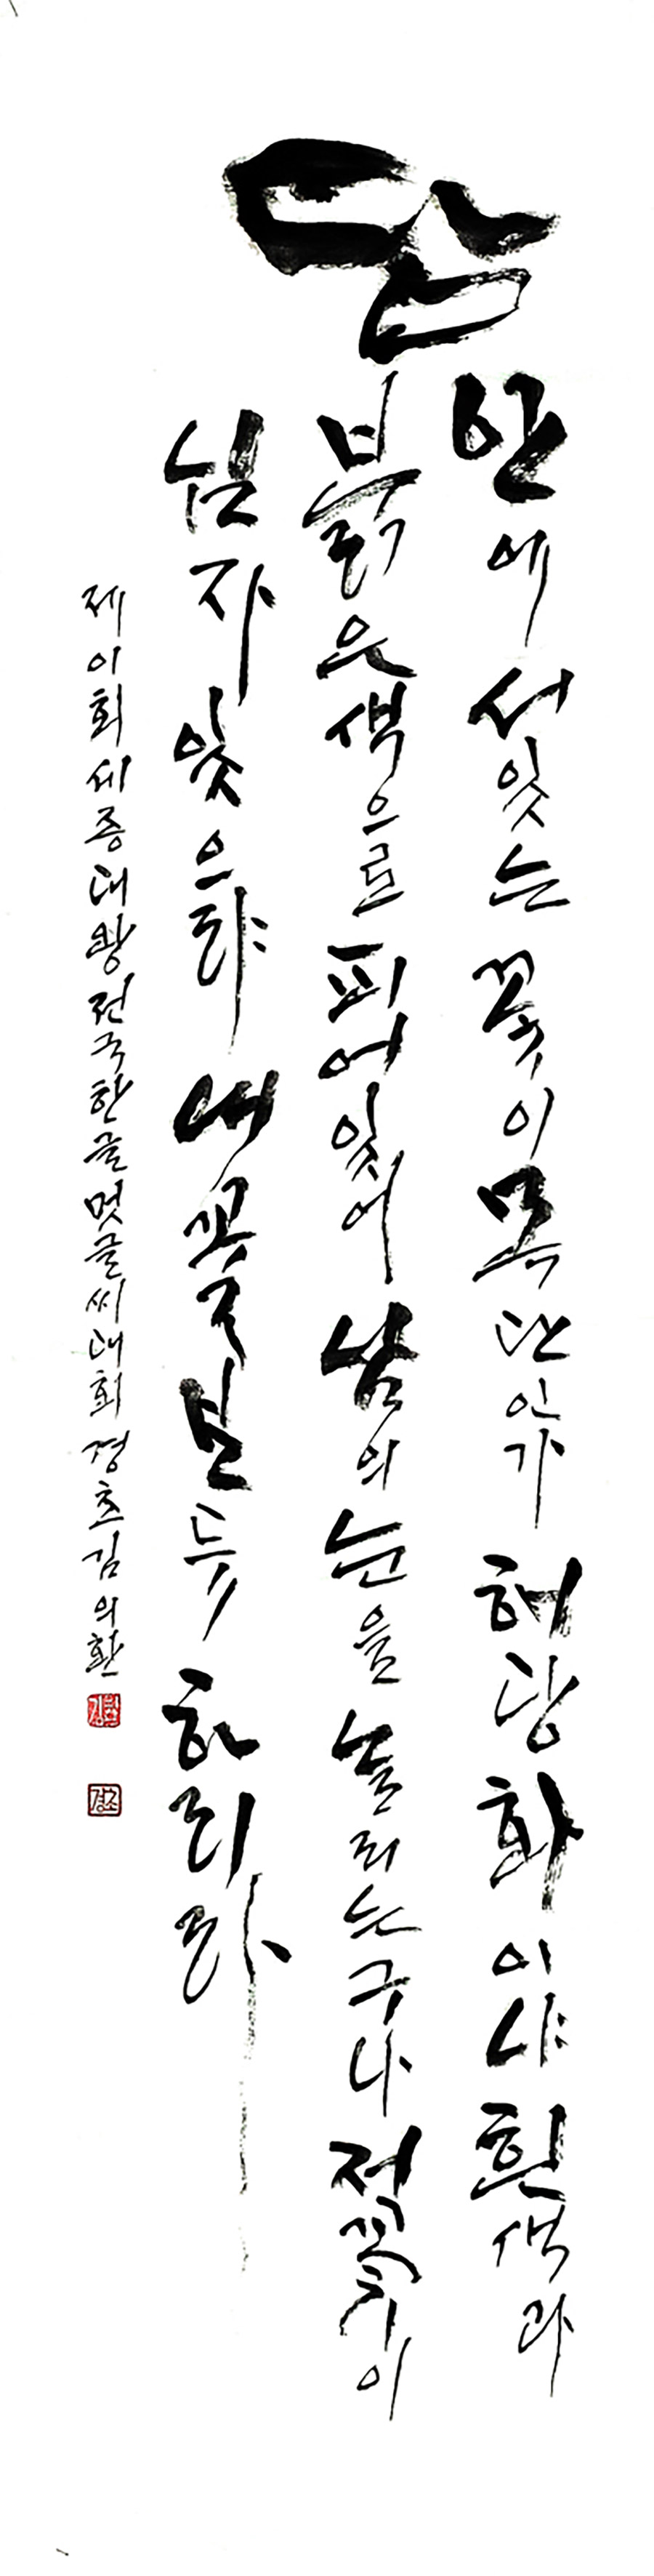 담
안에 서잇는 꽃이 목단인가 해당화이냐 흰색과
붉은색으로 피어잇어 남의 눈을 놀래는구나 저꽃이
님자 잇으랴 내꽃 본듯 하리라
제이회세종대왕전국한글멋글씨대회 경초 김의환
경초